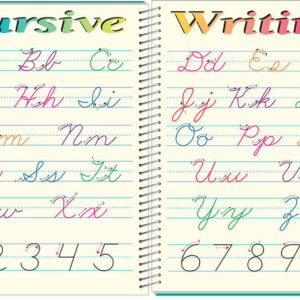 ursive Writin
Bb Cc Dd Ee
Hh Ii Jj Kk
m Nn Oo Pp
Ss Tt Uu
Xx Yy Z
2 3 4 5 6 7 8 9